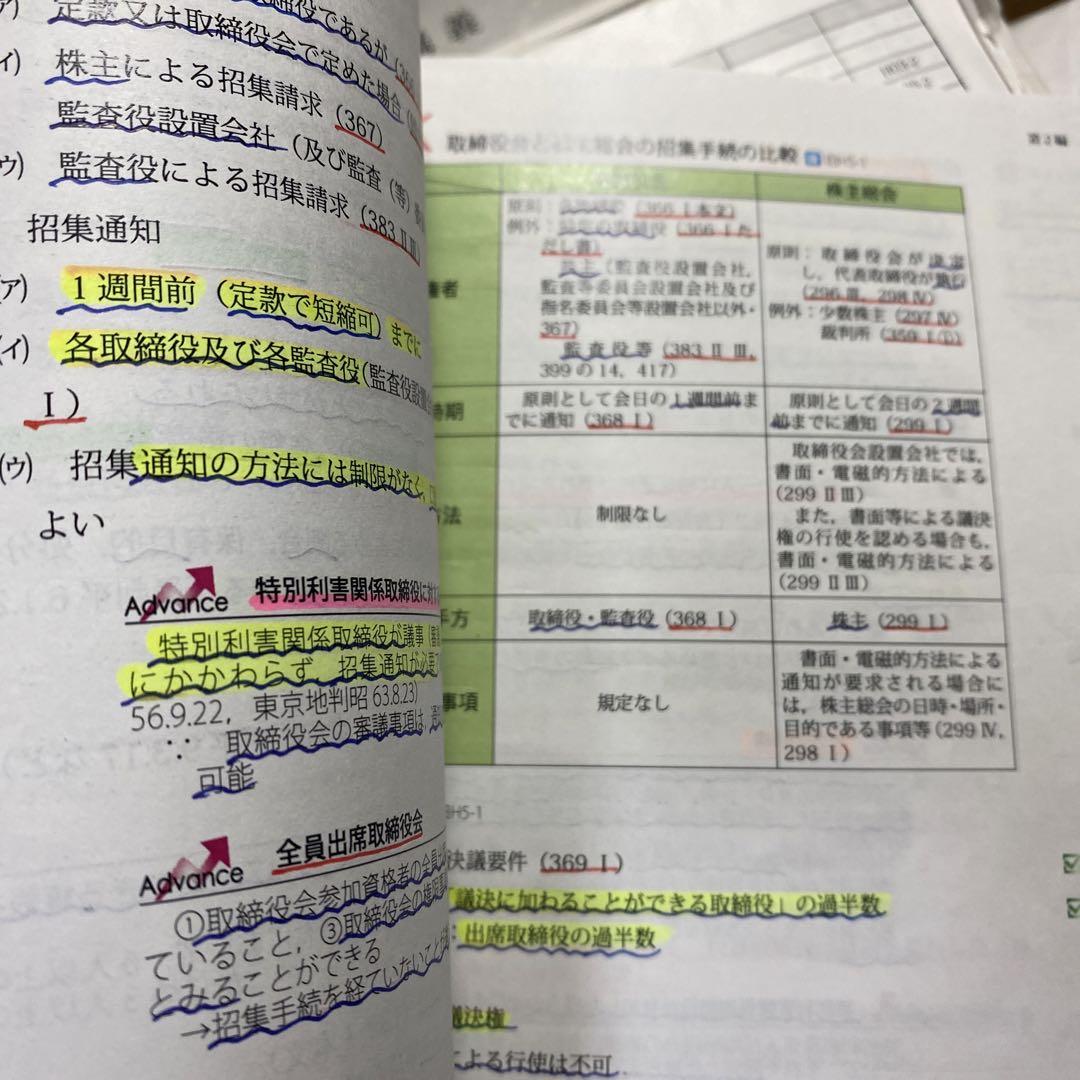 取締役であるが
定款又は取締役会で定めた場合
株主による招集請求（367）
監査役設置会社（及び監査（等）
(ウ) 監査役による招集請求（383ⅡⅢ）
招集通知
(ア) 1週間前（定款で短縮可）までに
(イ) 各取締役及び各監査役（監査役設置
Ⅰ）
(ウ) 招集通知の方法には制限がなく，
よい
Advance 特別利害関係取締役に対す
特別利害関係取締役が議事（審
にかかわらず，招集通知が必要
56.9.22，東京地判昭 63.8.23）
∵ 取締役会の審議事項は，
可能
Advance 全員出席取締役会
①取締役会参加資格者の全員
ていること，③取締役会の権限事
とみることができる
→招集手続を経ていないこと
第2編
総会の招集手続の比較 BH5-1
株主総会
者
原則：（366Ⅰ本文）
例外：特定の取締役（366Ⅰた
だし書）
株主（監査役設置会社，
監査等委員会設置会社及び
指名委員会等設置会社以外・
367）
監査役等（383ⅡⅢ，
399の14，417）
原則：取締役会が決定
し，代表取締役が執行
（296Ⅲ，298Ⅳ）
例外：少数株主（297Ⅳ）
裁判所（359Ⅰ①）
時期
原則として会日の1週間前ま
でに通知（368Ⅰ）
原則として会日の2週間
前までに通知（299Ⅰ）
方法
制限なし
取締役会設置会社では，
書面・電磁的方法による
（299ⅡⅢ）
また，書面等による議決
権の行使を認める場合も，
書面・電磁的方法による
（299ⅡⅢ）
方
取締役・監査役（368Ⅰ）
株主（299Ⅰ）
事項
規定なし
書面・電磁的方法による
通知が要求される場合に
は，株主総会の日時・場所・
目的である事項等（299Ⅳ，
298Ⅰ）
BH5-1
決議要件（369Ⅰ）
「議決に加わることができる取締役」の過半数
：出席取締役の過半数
議決権
による行使は不可